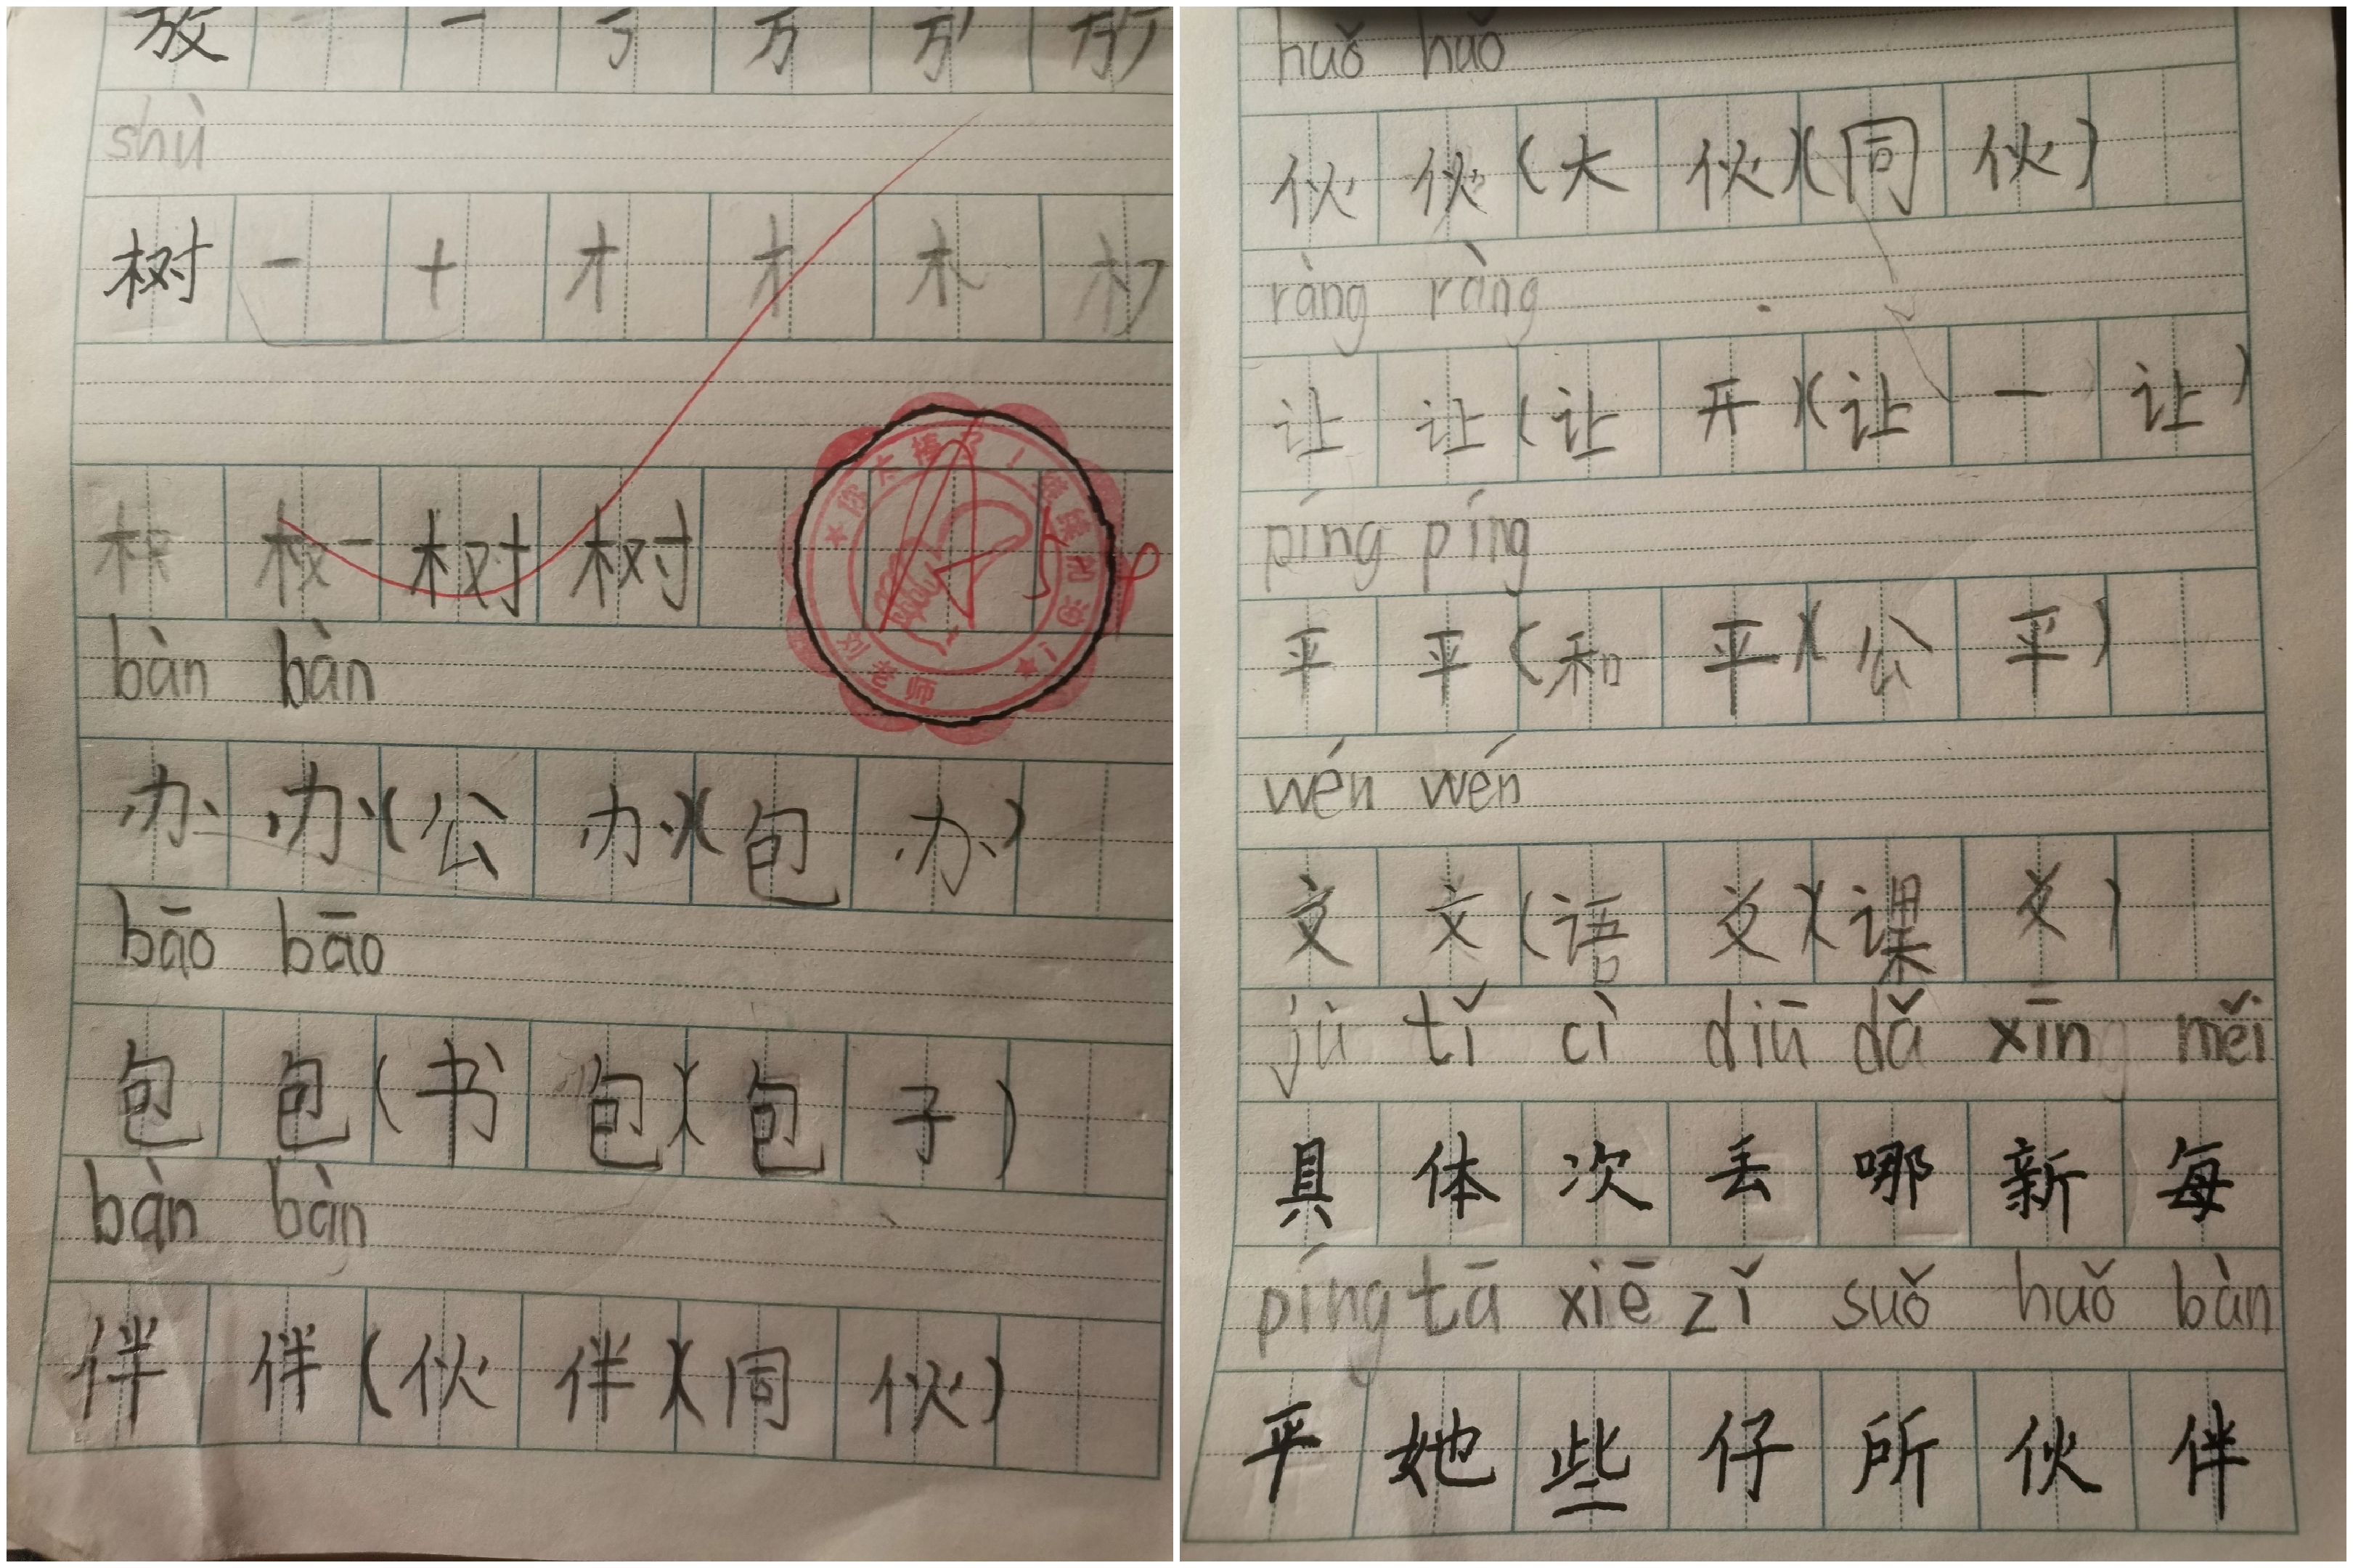 放 一 丂 方
shù
树 一 十 才 木 木
树 树
bàn bàn
办 办 (公 办)(包 办)
bāo bāo
包 包 (书 包)(包 子)
bàn bàn
伴 伴 (伙 伴)(同 伙)
你太棒了！继续加油！
刘老师
huǒ huǒ
伙 伙 (大 伙)(同 伙)
ràng ràng
让 让 (让 开)(让 一 让)
píng píng
平 平 (和 平)(公 平)
wén wén
文 文 (语 文)(课 文)
jù tǐ cì diū dǎ xīn měi
具 体 次 丢 哪 新 每
píng tā xiē zǐ suǒ huǒ bàn
平 她 些 仔 所 伙 伴